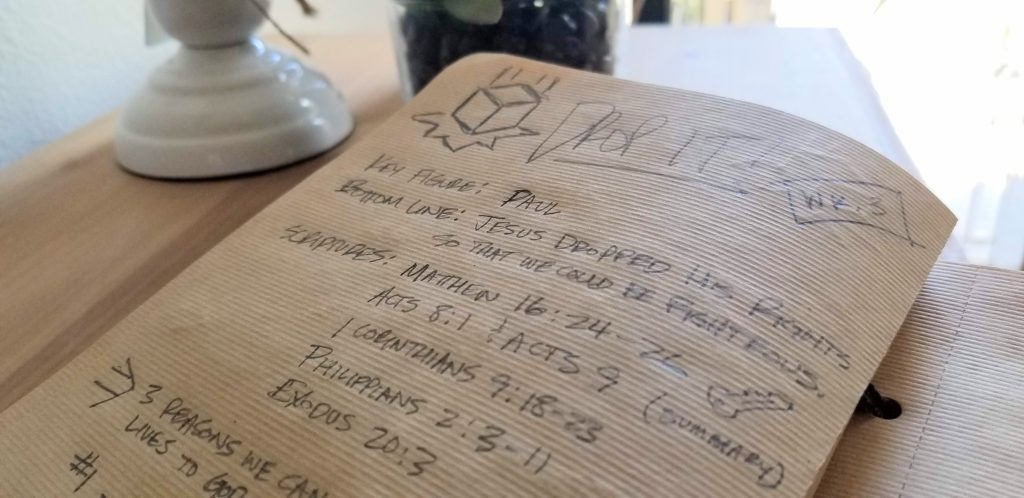 DROP IT!
WK. 3
KEY FIGURE: PAUL
BOTTOM LINE: JESUS DROPPED HIS RIGHTS
SO THAT WE COULD BE RIGHTEOUS.
SCRIPTURES: MATTHEW 16:24-26
ACTS 8:1 & ACTS 9 (SUMMARY)
1 CORINTHIANS 9:18-23
PHILIPPIANS 2:3-11
EXODUS 20:3
3 REASONS WE CAN
LIVES TO GOD
#1